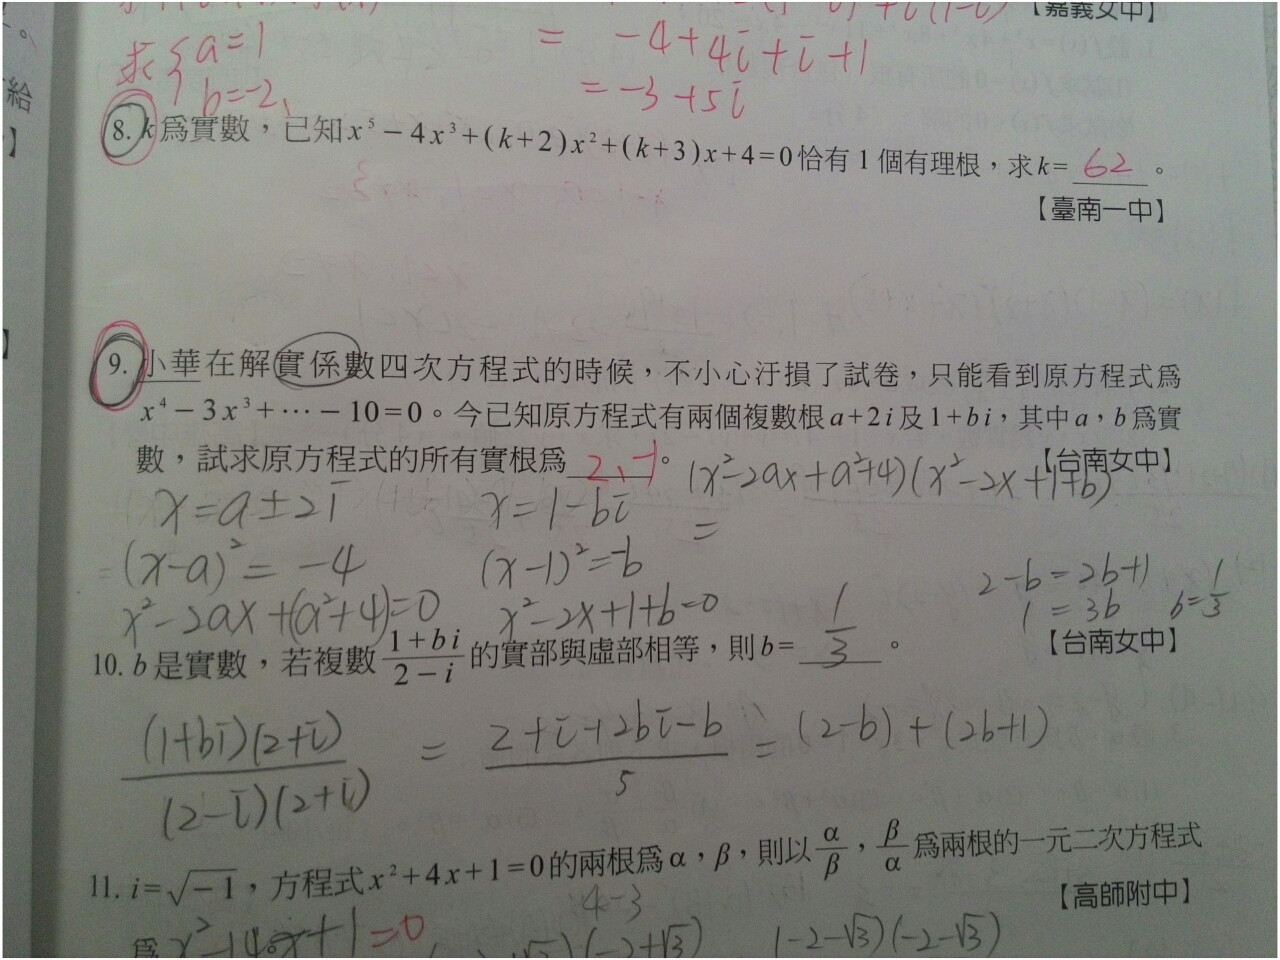 【嘉義女中】
求{a=1
b=-2、
= -4+4i+i+1
= -3+5i
給
8. k為實數，已知x⁵－4x³＋(k＋2)x²＋(k＋3)x＋4＝0恰有1個有理根，求k= 62 。
【臺南一中】
9. 小華在解實係數四次方程式的時候，不小心汙損了試卷，只能看到原方程式為
x⁴－3x³＋…－10＝0。今已知原方程式有兩個複數根a＋2i及1＋bi，其中a，b為實
數，試求原方程式的所有實根為 2、-1 。
【台南女中】
(x²-2ax+a²+4)(x²-2x+1+b)
=
x=a±2i
x=1-bi
(x-a)²=-4
(x-1)²=-b
x²-2ax+(a²+4)=0
x²-2x+1+b=0
2-b=2b+1
1=3b b=1/3
10. b是實數，若複數(1+bi)/(2-i)的實部與虛部相等，則b= 1/3 。
【台南女中】
(1+bi)(2+i)/(2-i)(2+i) = 2+i+2bi-b/5 = (2-b)+(2b+1)
11. i=√-1，方程式x²＋4x＋1＝0的兩根為α，β，則以α/β，β/α為兩根的一元二次方程式
【高師附中】
4-3
為 x²-14x+1=0
(-2+√3)
(-2-√3)(-2-√3)